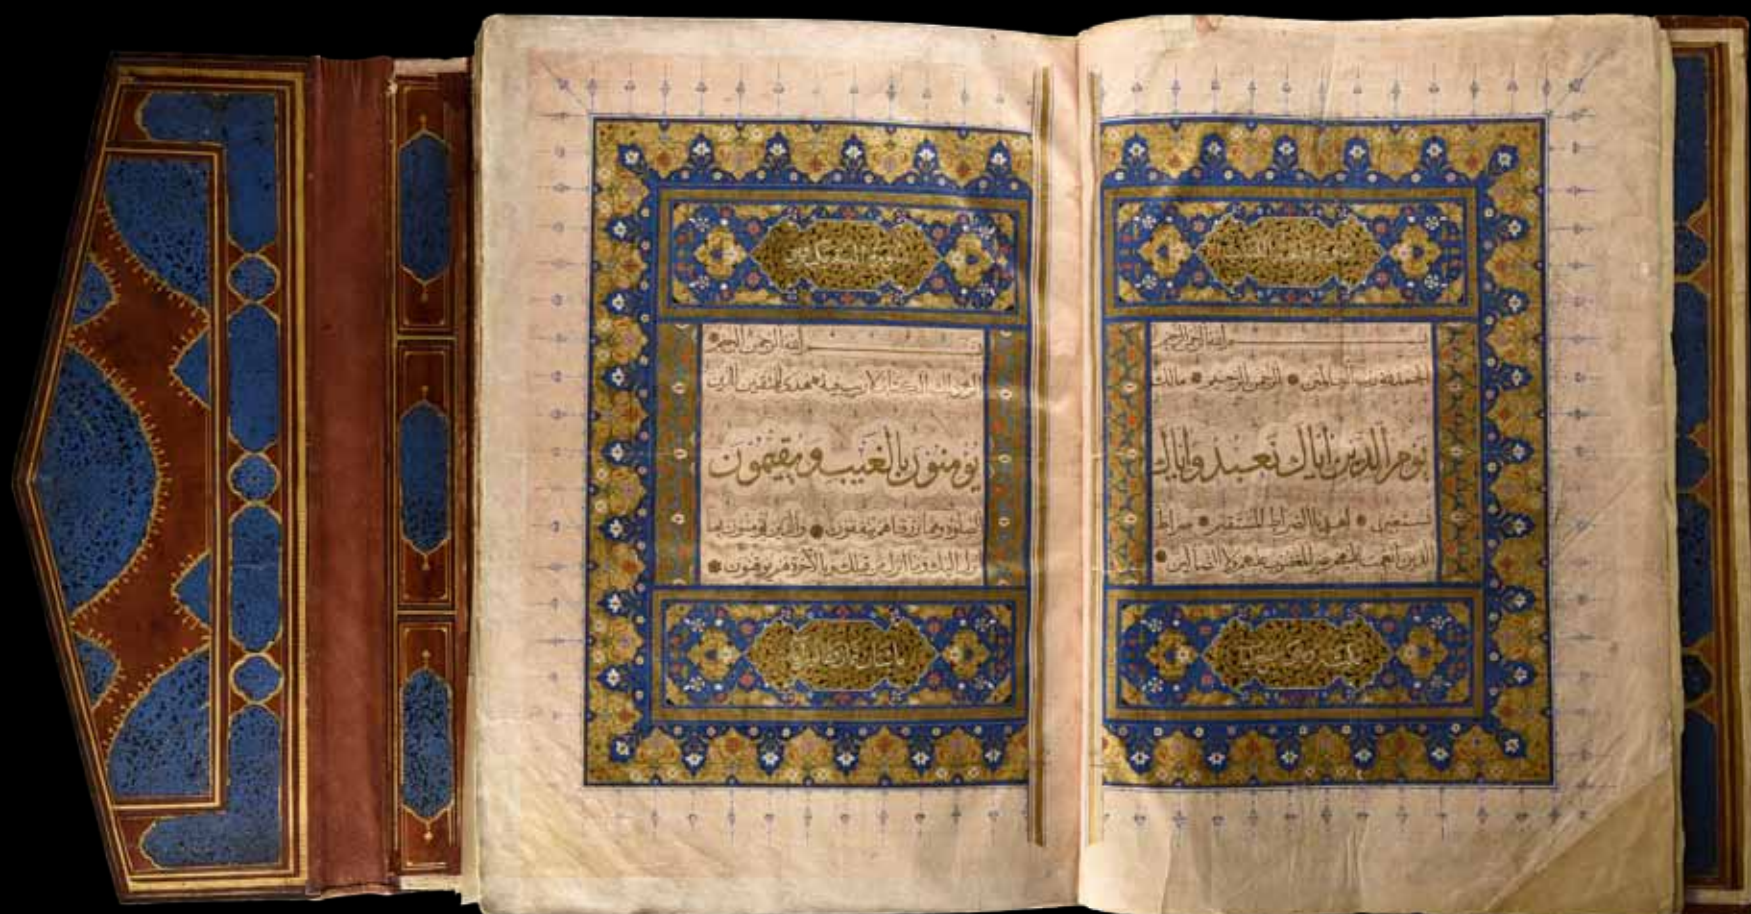 بسم الله الرحمن الرحيم
الحمد لله رب العالمين الرحمن الرحيم مالك
يوم الدين اياك نعبد واياك
نستعين اهدنا الصراط المستقيم صراط
الذين انعمت عليهم غير المغضوب عليهم ولا الضالين
سورة البقرة
بسم الله الرحمن الرحيم
الم ذلك الكتاب لا ريب فيه هدى للمتقين الذين
يُؤمنُونَ بالغَيبِ ويُقيمُونَ
الصلوة ومما رزقناهم ينفقون والذين يؤمنون بما
انزل اليك وما انزل من قبلك وبالآخرة هم يوقنون